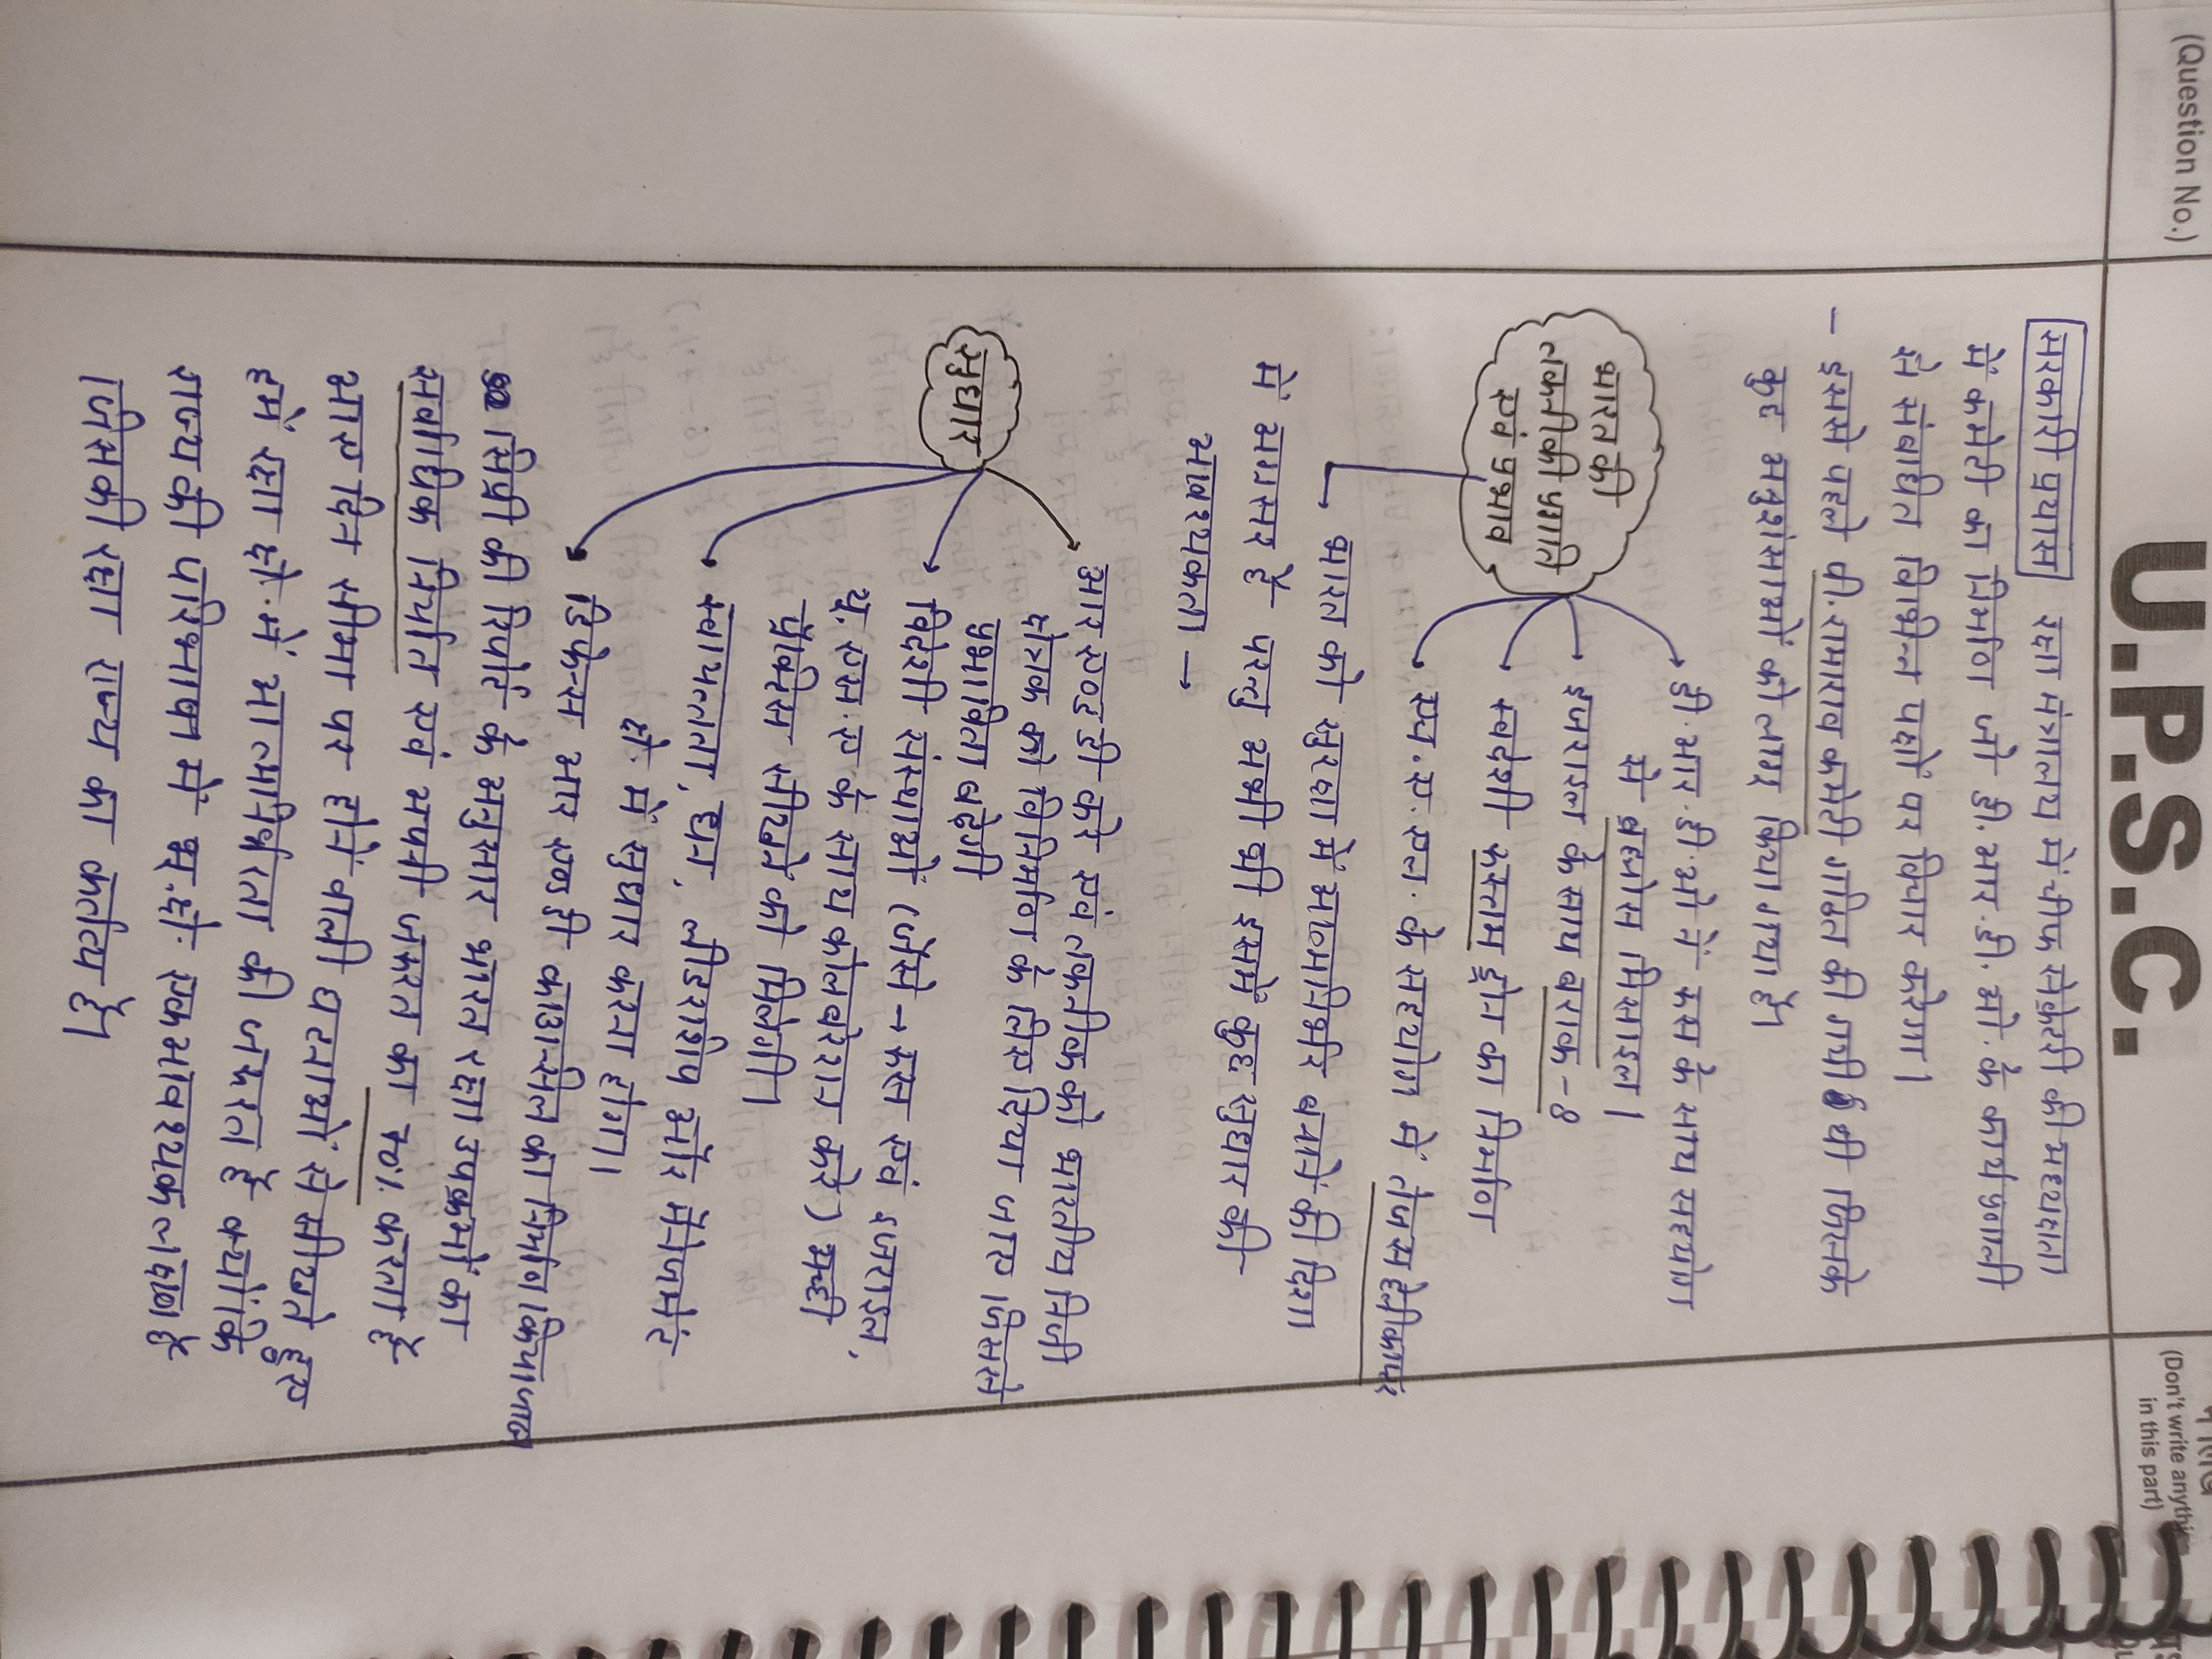 (Question No.)
U.P.S.C.
(Don't write anything
in this part)
सरकारी प्रयास रक्षा मंत्रालय में चीफ सेक्रेटरी की अध्यक्षता
में कमेटी का निर्माण जो डी.आर.डी.ओ. के कार्यप्रणाली
से संबंधित विभिन्न पक्षों पर विचार करेगा।
- इससे पहले पी.रामाराव कमेटी गठित की गयी थी जिसके
कुछ अनुशंसाओं को लागू किया गया है।
भारत की
तकनीकी प्रगति
एवं प्रभाव
डी.आर.डी.ओ ने रूस के साथ सहयोग
से ब्रह्मोस मिसाइल।
इजराइल के साथ बराक-8
स्वदेशी रूस्तम ड्रोन का निर्माण
एच.ए.एल. के सहयोग में तेजस हेलीकाप्टर
भारत को सुरक्षा में आत्मनिर्भर बनाने की दिशा
में अग्रसर है परन्तु अभी भी इसमें कुछ सुधार की
आवश्यकता →
सुधार
आर एण्ड डी करे एवं तकनीक को भारतीय निजी
क्षेत्रक को विनिर्माण के लिए दिया जाए जिससे
प्रभाविता बढ़ेगी
विदेशी संस्थाओं (जैसे → रूस एवं इजराइल,
यू.एस.ए के साथ कोलबरेशन करे) अच्छी
प्रैक्टिस सीखने को मिलेगी।
स्वायत्तता, धन, लीडरशीप और मैनेजमेंट
क्षे. में सुधार करना होगा।
डिफेन्स आर एण्ड डी काउान्सील का निर्माण किया जाए
सिप्री की रिपोर्ट के अनुसार भारत रक्षा उपक्रमों का
सर्वाधिक निर्यात एवं अपनी जरूरत का 70%. करता है
आए दिन सीमा पर होने वाली घटनाओं से सीखते हुए
हमें रक्षा क्षे. में आत्मनिर्भरता की जरूरत है क्योंकि
राज्य की परिभाषा में भू.क्षे. एक आवश्यक तत्व है
जिसकी रक्षा राज्य का कर्तव्य है।